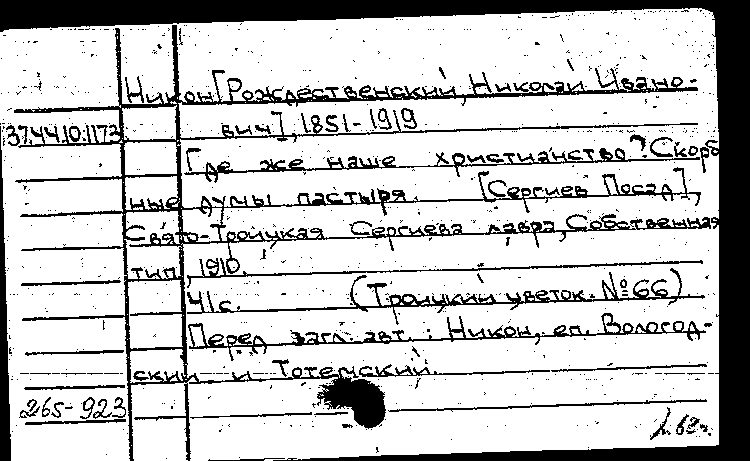 Никон [Рождественский, Николай Ивано-
вич], 1851-1919
37.44.10.1173
Где же наше христианство? Скорб
ные думы пастыря. [Сергиев Посад],
Свято-Троицкая Сергиева лавра, Собственная
тип., 1910.
41с. (Троицкий цветок. №66)
Перед загл. авт.: Никон, еп. Вологод-
ский и Тотемский.
265-923